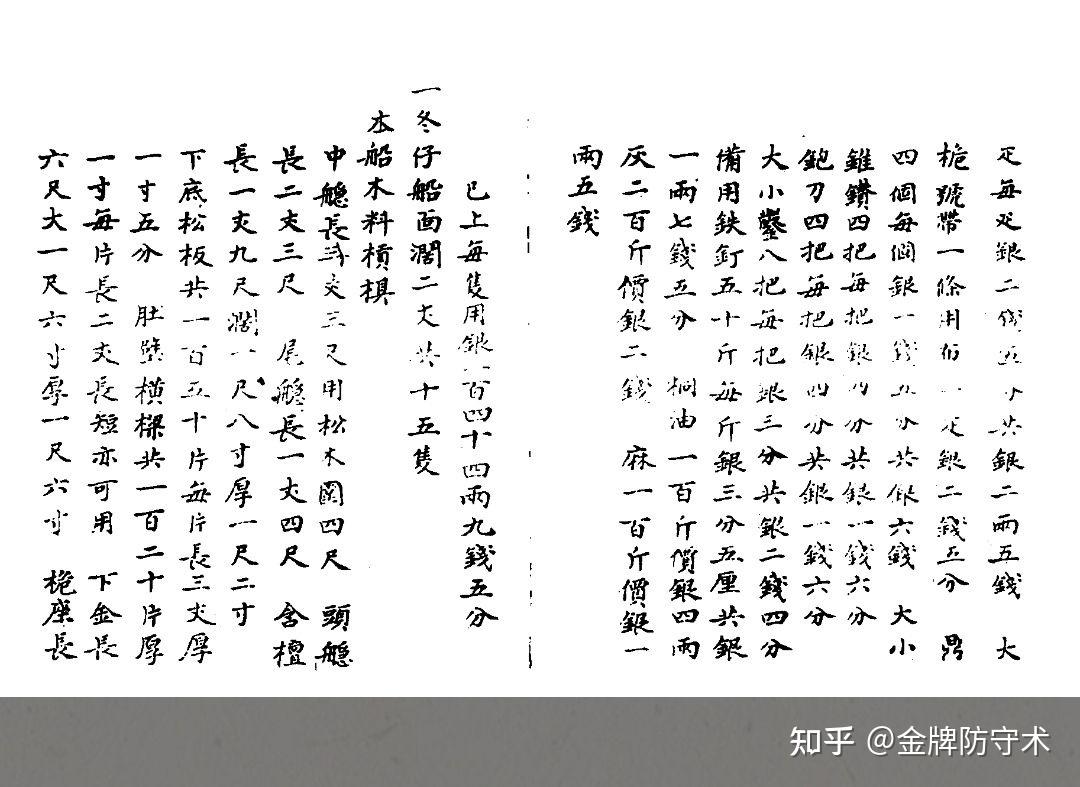 疋每疋銀二錢五分共銀二兩五錢　大
桅號帶一條用布一疋銀二錢五分　鼎
四個每個銀一錢五分共銀六錢　大小
錐鑽四把每把銀四分共銀一錢六分
鉋刀四把每把銀四分共銀一錢六分
大小鑿八把每把銀三分共銀二錢四分
備用鉄釘五十斤每斤銀三分五厘共銀
一兩七錢五分　桐油一百斤價銀四兩
灰二百斤價銀二錢　麻一百斤價銀一
兩五錢
已上每隻用銀一百四十四兩九錢五分
一冬仔船面濶二丈共十五隻
本船木料槓棋
中艌長三丈三尺用松木闊四尺　頭艌
長二丈三尺　尾艌長一丈四尺　含檀
長一丈九尺濶一尺八寸厚一尺二寸
下底松板共一百五十片每片長三丈厚
一寸五分　肚䑺橫樑共一百二十片厚
一寸每片長二丈長短亦可用　下金長
六尺大一尺六寸厚一尺六寸　桅座長
知乎 @金牌防守术